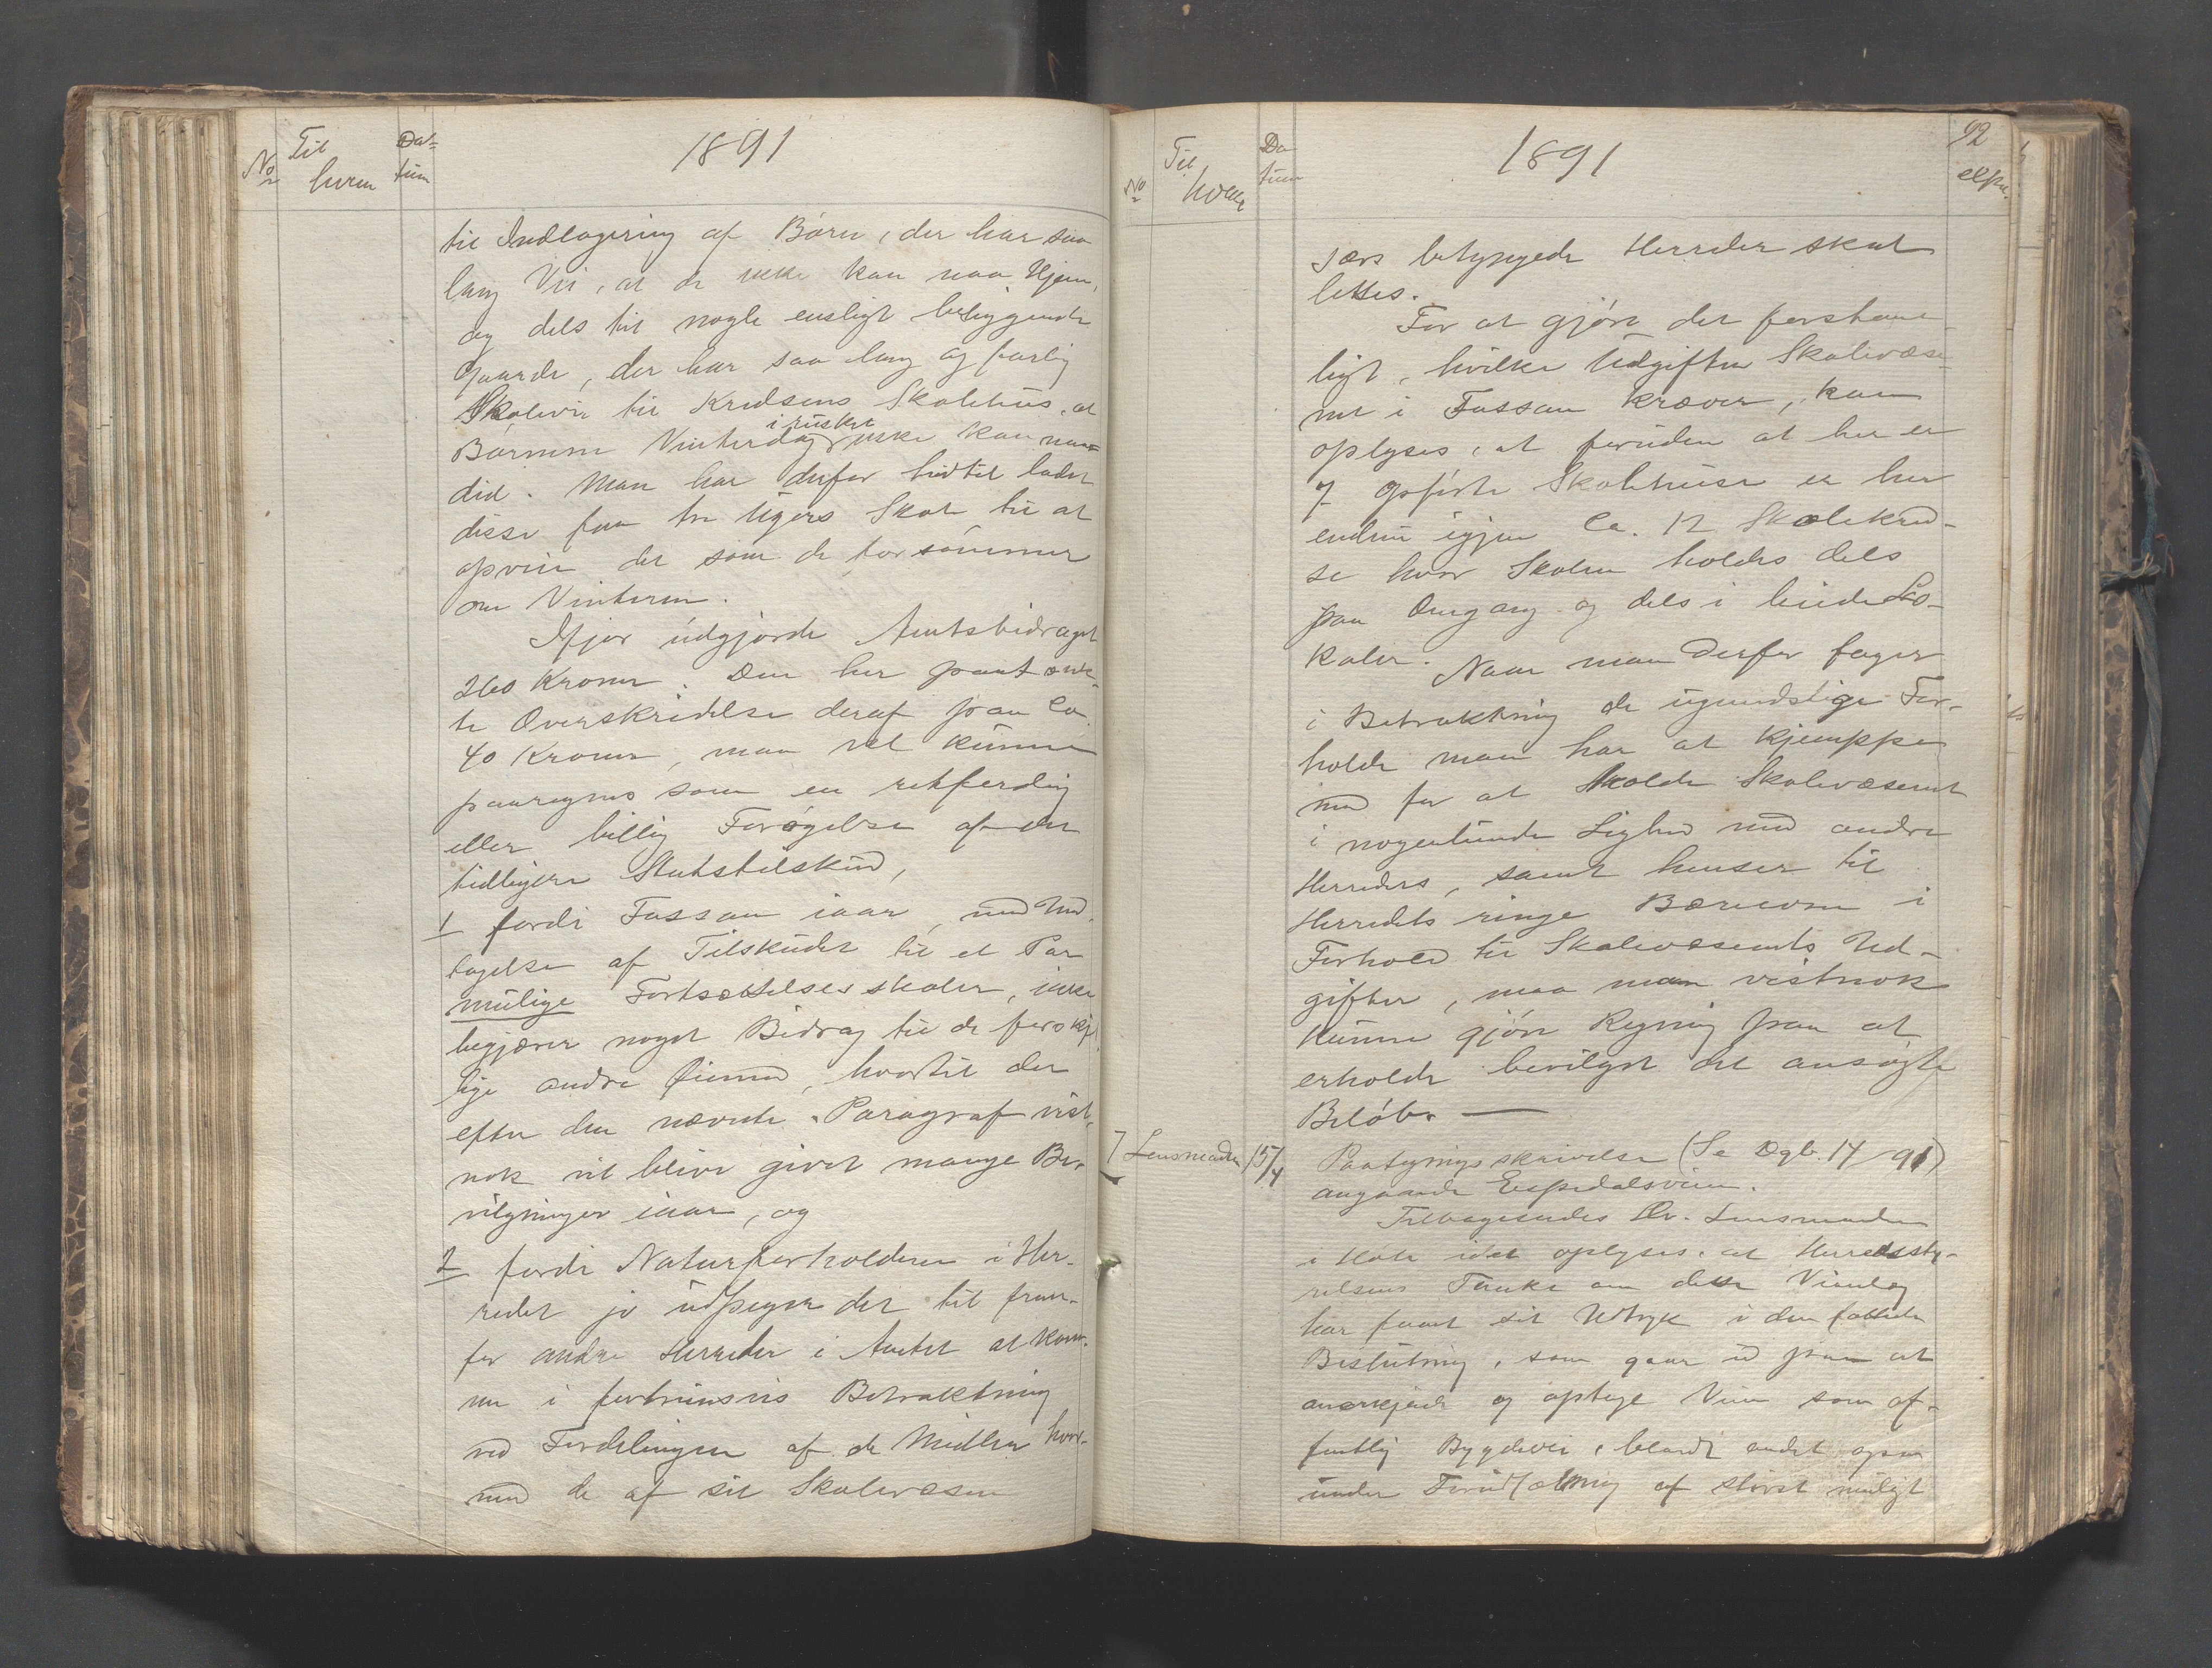 No
Til
hvem
Da-
tum
1891
til Indlogering af Børn, der har saa
lang Vei, at de ikke kan naa Hjem,
og dels til nogle ensligt beliggende
Gaarde, der har saa lang og farlig
Skolevei til Kredsens Skolehus, at
i rusket
Børnene Vinterdag ikke kan naa
did. Man har derfor hidtil ladet
disse faa to Ugers Skole til at
opveie det som de forsømmer
om Vinteren.
Ifjor udgjorde Amtsbidraget
260 Kroner. Den her paatænk-
te Overskridelse deraf paa Ca.
40 Kroner, maa vel kunne
paaregnes som en retferdig
eller billig Forøgelse af det
tidligere Statstilskud,
1 fordi Fossan iaar, med Und-
tagelse af Tilskudet til et Par
mulige Fortsættelsesskoler, ikke
begjærer noget Bidrag til de forskjel-
lige andre Øiemed, hvortil der
efter den nævnte Paragraf vist-
nok vil blive givet mange Be-
vilgninger iaar, og
2 fordi Naturforholdene i Her-
redet jo udpeger det til frem-
for andre Herreder i Amtet at kom-
me i fortrinsvis Betraktning
ved Fordelingen af de Midler hvor-
med de af sit Skolevæsen
No
Til
hvem
Da
tum
1891
92
expd.
særs betyngede Herreder skal
lettes.
For at gjøre det forstaae-
ligt, hvilke Udgifter Skolevæse-
net i Fossan kræver, kan
oplyses, at foruden at her er
7 opførte Skolehuse er her
endnu igjen Ca. 12 Skolekred-
se hvor Skolen holdes dels
paa Omgang og dels i leiede Lo-
kaler. Naar man derfor tager
i Betraktning de ugunstige For-
holde man har at kjempe
med for at holde Skolevæsenet
i nogenlunde Lighed med andre
Herreders, samt henser til
Herredets ringe Bæreevne i
Forhold til Skolevæsenets Ud-
gifter, maa man vistnok
kunne gjøre Regning paa at
erholde bevilget det ansøgte
Beløb. —
7 Lensmanden 15/4 Paategningsskrivelse (Se Dgb. 14/91)
angaaende Espedalsveien.
Tilbagesendes Hr. Lensmanden
i Hole idet oplyses, at Herredssty-
relsens Tanke om dette Veianlæg
har faaet sit Udtryk i den fattede
Beslutning, som gaar ud paa at
anerkjende og optage Veien som of-
fentlig Bygdevei, blandt andet ogsaa
under Forudsætning af størst muligt